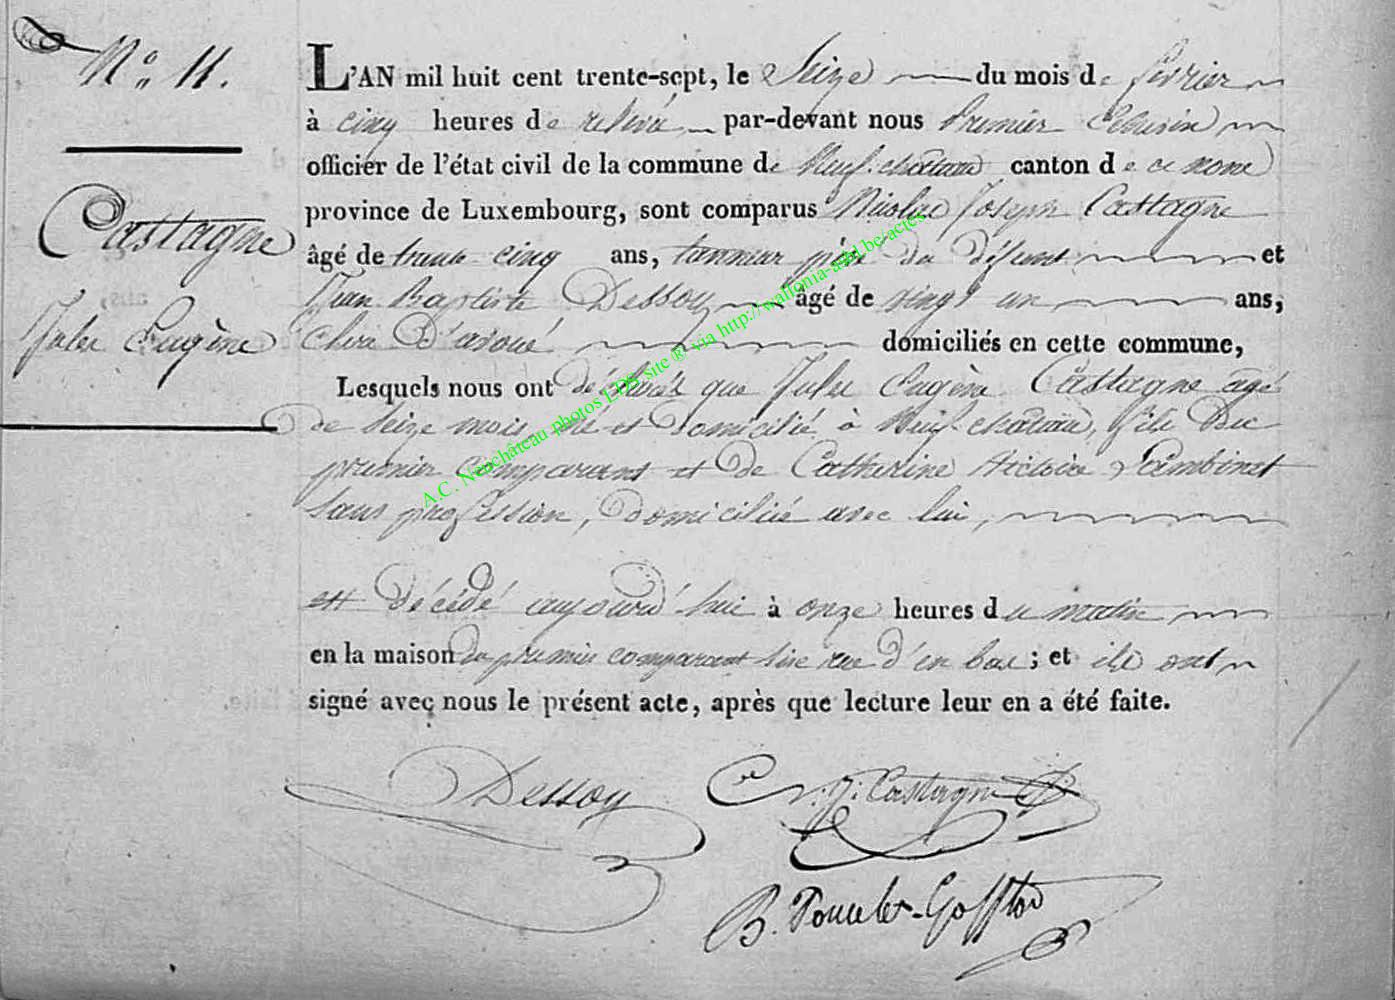 N° 11.
Castagne
Jules Eugène
L'AN mil huit cent trente-sept, le Seize du mois de février
à cinq heures de relevée par-devant nous Premier Echevin
officier de l'état civil de la commune de Neufchateau canton de ce nom
province de Luxembourg, sont comparus Nicolas Joseph Castagne
âgé de trente cinq ans, tanneur père du défunt et
Jean Baptiste Dessoy âgé de vingt un ans,
clerc d'avoué domiciliés en cette commune,
Lesquels nous ont déclaré que Jules Eugène Castagne âgé
de Seize mois, né et domicilié à Neufchateau, fils du
premier comparant et de Catherine Victoire Lambinet
sans profession, domiciliée avec lui,
est décédé aujourd'hui à onze heures du matin
en la maison du premier comparant sise rue d'en bas ; et ils ont
signé avec nous le présent acte, après que lecture leur en a été faite.
Dessoy
N. J. Castagne
B. Poncelet-
A.C. Neufchâteau photos LDS site ® via http://wallonia-asbl.be/actes